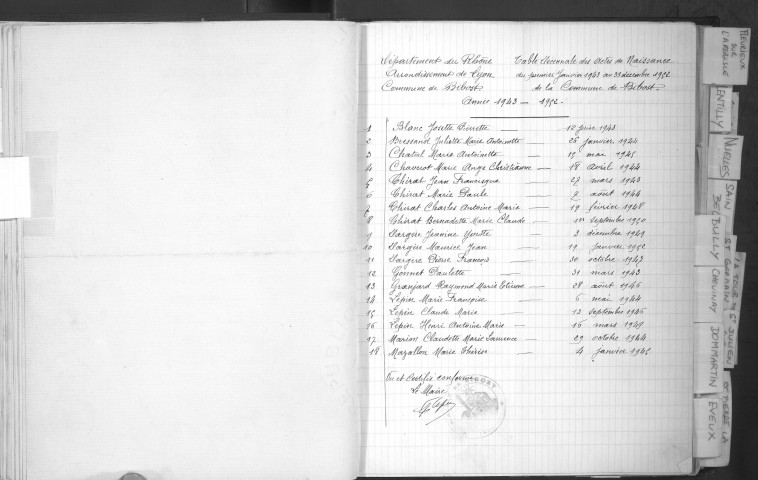 Département du Rhône
Arrondissement de Lyon
Commune de Bibost
Table décennale des Actes de Naissance
du premier Janvier 1943 au 31 décembre 1952
de la Commune de Bibost
Année 1943 — 1952
1 Blanc Josette Pierrette — 10 1943
2 Bressand Juliette Marie Antoinette — 26 janvier 1944
3 Chatul Marie Antoinette — 15 mai 1945
4 Chaverot Marie Ange Christianne — 18 Avril 1944
5 Chirat Jean Francisque — 27 mars 1943
6 Chirat Marie Paule — 7 août 1944
7 Chirat Charles Antoine Marie — 19 février 1948
8 Chirat Bernadette Marie Claude — 1er septembre 1950
9 Jeannine Yvette — 3 décembre 1949
10 Maurice Jean — 19 janvier 1952
11 Pierre François — 30 octobre 1943
12 Gonnet Paulette — 31 mars 1943
13 Granjard Raymond Marie Etienne — 28 août 1946
14 Lepin Marie Françoise — 6 mai 1944
15 Lepin Claude Marie — 12 septembre 1946
16 Lepin Henri Antoine Marie — 16 mars 1949
17 Marion Claudette Marie Laurence — 29 octobre 1944
18 Mazallon Marie Thérèse — 4 janvier 1945
Vu et Certifié conforme
Le Maire
FLEURIEUX
SUR
L'ARBRESLE
ENTILLY
NUELLES
SAIN
BEL
BULLY
ST GERMAIN
CHEVINAY
LA TOUR
DOMMARTIN
ST JULIEN
EVEUX
ST PIERRE LA